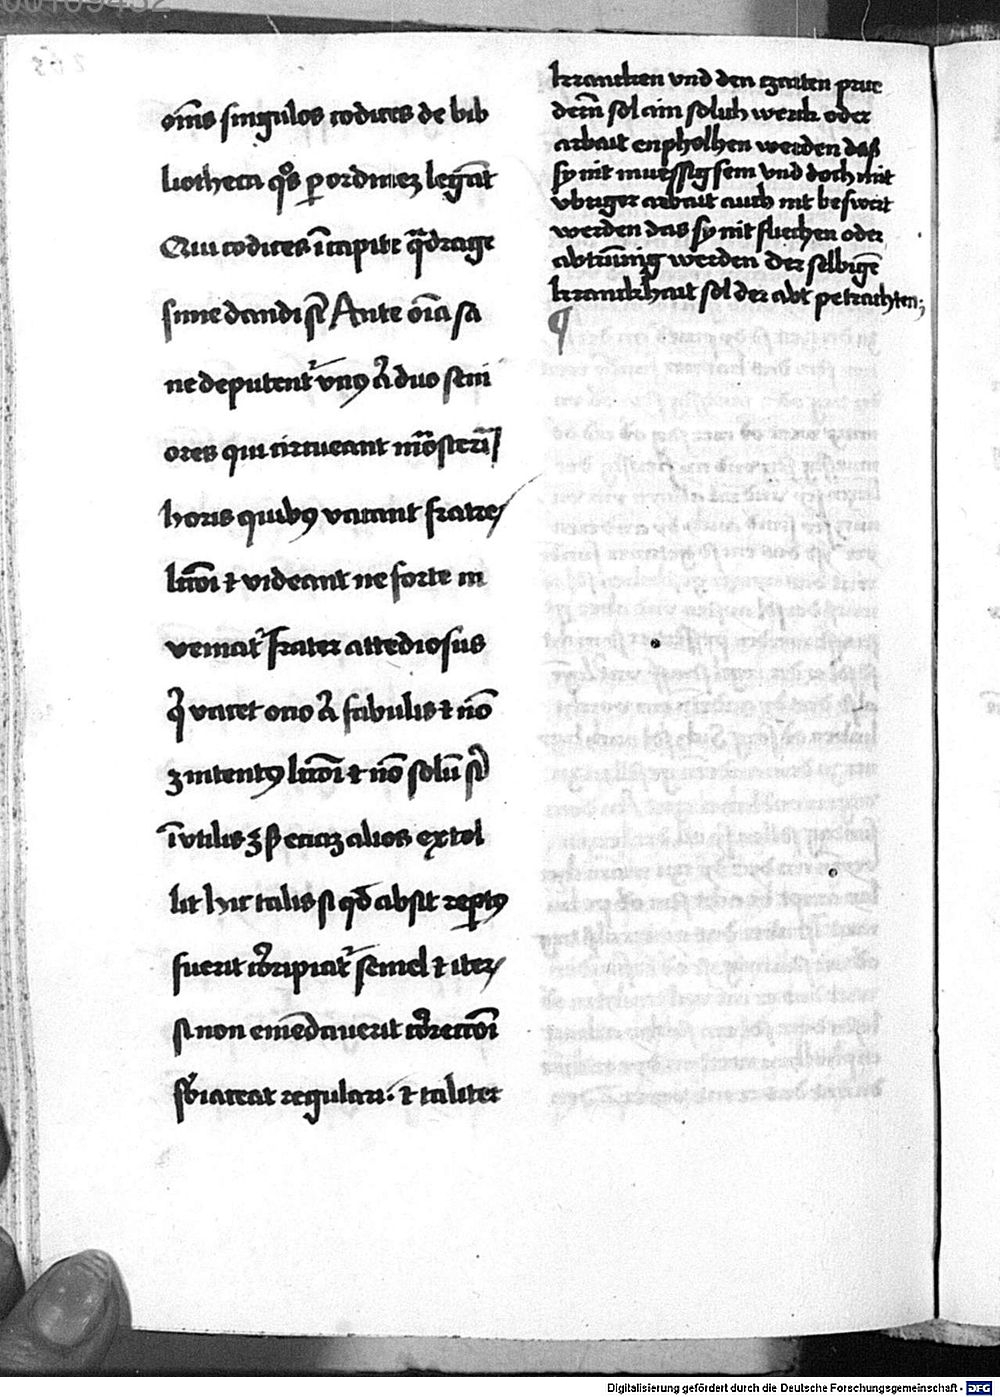 om̄s singulos codices de bib
liotheca q̄s ꝑ ordinez legāt
Qui codices ī capite q̄drage
sime dandi sт̄ Ante oīa sa
ne deputent᷑ vnꝯ aūt duo seni
ores qui circueant mōsteriū
horis quibꝯ vacant fratres
lcōni ⁊ videant ne forte in
veniat᷑ frater attediosus
qͥ vacet ocio aūt fabulis ⁊ nō
ꝫ intentꝯ lcōni ⁊ nō solū sꝫ
īvtilis ꝫ sꝫ eciaꝫ alios extol
lit hic talis si qd̄ absit reptꝯ
fuerit cōrripiat᷑ semel ⁊ iteꝝ
si non emēdauerit cōreccōni
sbiaceat regulari · ⁊ taliter
krancken vnd den czarten prue
dern̄ sol ain solich werck oder
arbait enpholhen werden daß
sy nit muessig sein vnd doch mit
vbriger arbait auch nit beswert
werden das sy nit fliechen oder
abtrün̄ig werden der selbigē
kranckhait sol der abt petrachten;
¶
Digitalisierung gefördert durch die Deutsche Forschungsgemeinschaft - DFG